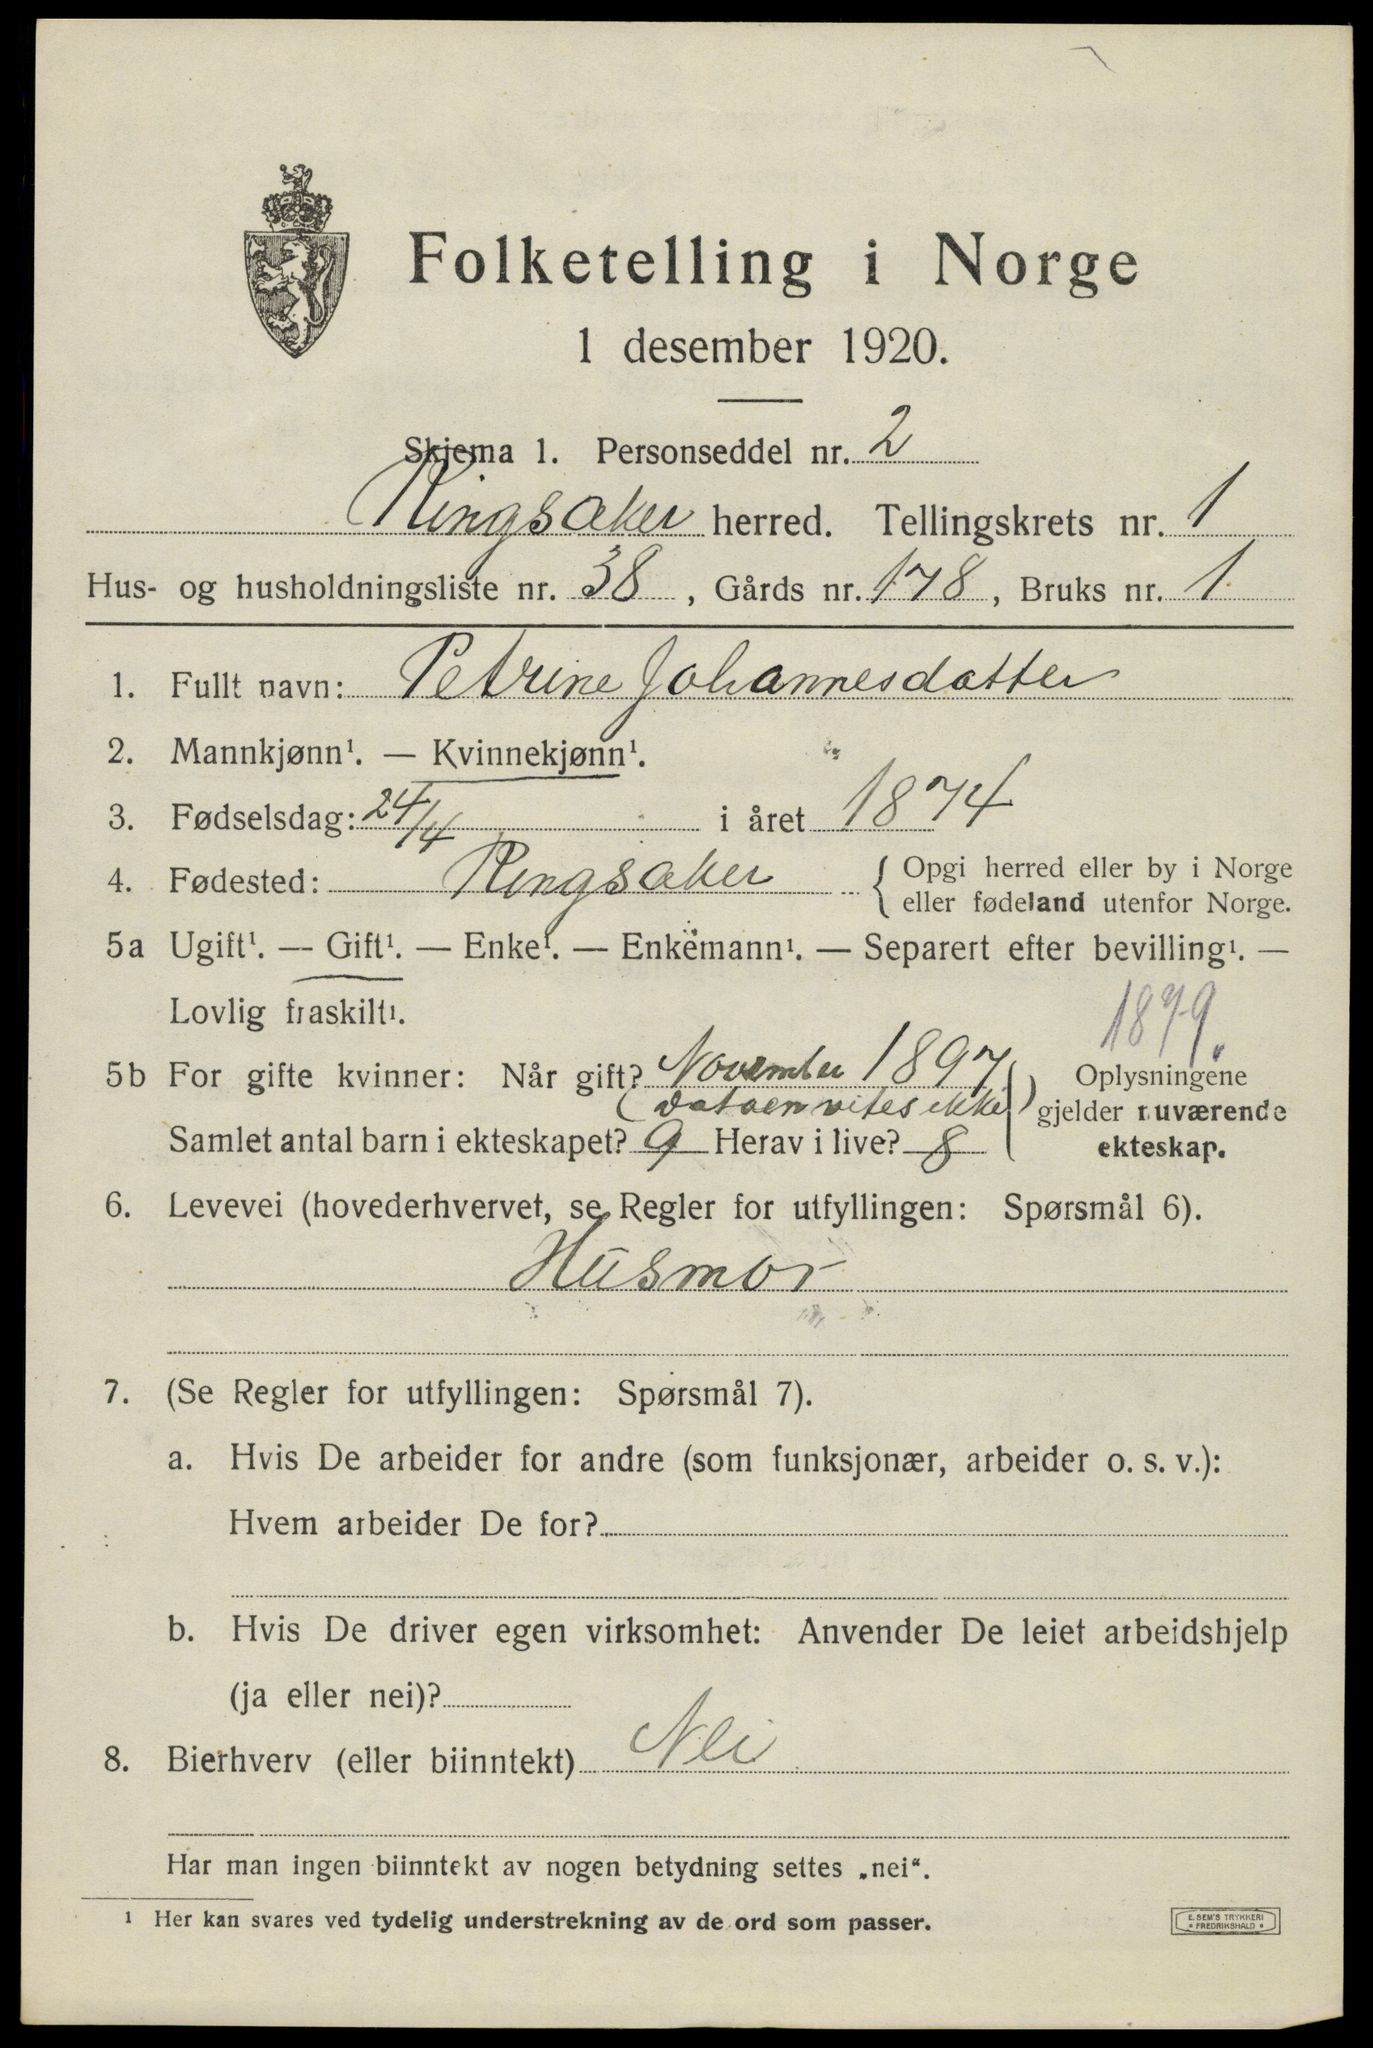 Folketelling i Norge
1 desember 1920.
Skjema 1. Personseddel nr. 2
Ringsaker herred. Tellingskrets nr. 1
Hus- og husholdningsliste nr. 38, Gårds nr. 178, Bruks nr. 1
1. Fullt navn: Petrine Johannesdatter
2. Mannkjønn¹. — Kvinnekjønn¹.
3. Fødselsdag: 24/4 i året 1874
4. Fødested: Ringsaker { Opgi herred eller by i Norge
eller fødeland utenfor Norge.
5a Ugift¹. — Gift¹. — Enke¹. — Enkemann¹. — Separert efter bevilling¹. —
Lovlig fraskilt¹.
1879.
5b For gifte kvinner: Når gift? November 1897 Oplysningene
(Datoen vites ikke) gjelder nuværende
Samlet antal barn i ekteskapet? 9 Herav i live? 8 ekteskap.
6. Levevei (hovederhvervet, se Regler for utfyllingen: Spørsmål 6).
Husmor
7. (Se Regler for utfyllingen: Spørsmål 7).
a. Hvis De arbeider for andre (som funksjonær, arbeider o. s. v.):
Hvem arbeider De for?
b. Hvis De driver egen virksomhet: Anvender De leiet arbeidshjelp
(ja eller nei)?
8. Bierhverv (eller biinntekt) Nei
Har man ingen biinntekt av nogen betydning settes „nei“.
¹ Her kan svares ved tydelig understrekning av de ord som passer.
E. SEM'S TRYKKERI
• FREDRIKSHALD •